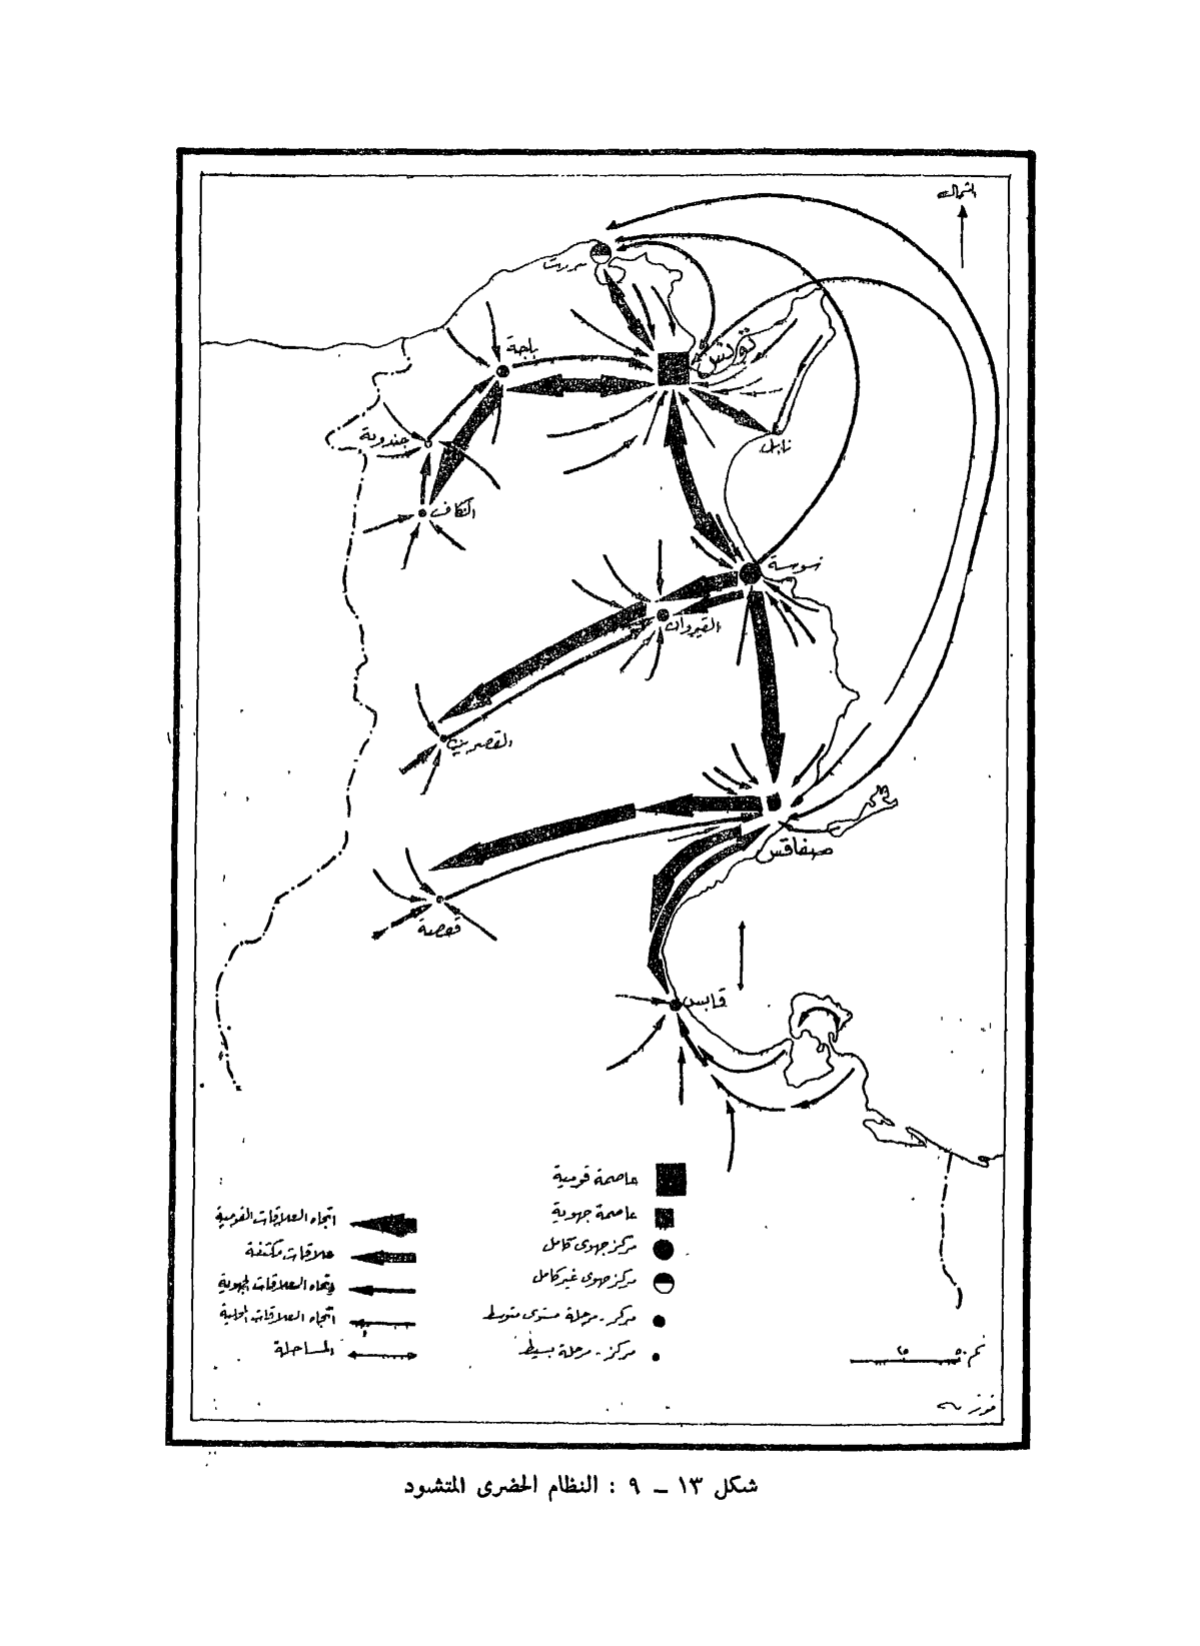 الشمال
بنزرت
باجة
تونس
جندوبة
نابل
الكاف
سوسة
القيروان
القصرين
صفاقس
قفصة
قابس
عاصمة قومية
عاصمة جهوية
مركز جهوى كامل
مركز جهوى غير كامل
مركز - مرحلة مستوى متوسط
مركز - مرحلة بسيط
اتجاه العلاقات القومية
علاقات مكثفة
اتجاه العلاقات الجهوية
اتجاه العلاقات المحلية
المساحلة
شكل ١٣ – ٩ : النظام الحضرى المتشود